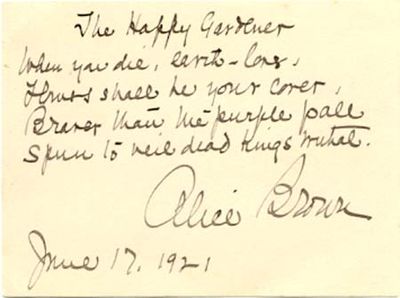 The Happy Gardener
When you die, earth-lover,
Flowers shall be your cover,
Braver than the purple pall
Spun to veil dead Kings withal.
Alice Brown
June 17. 1921